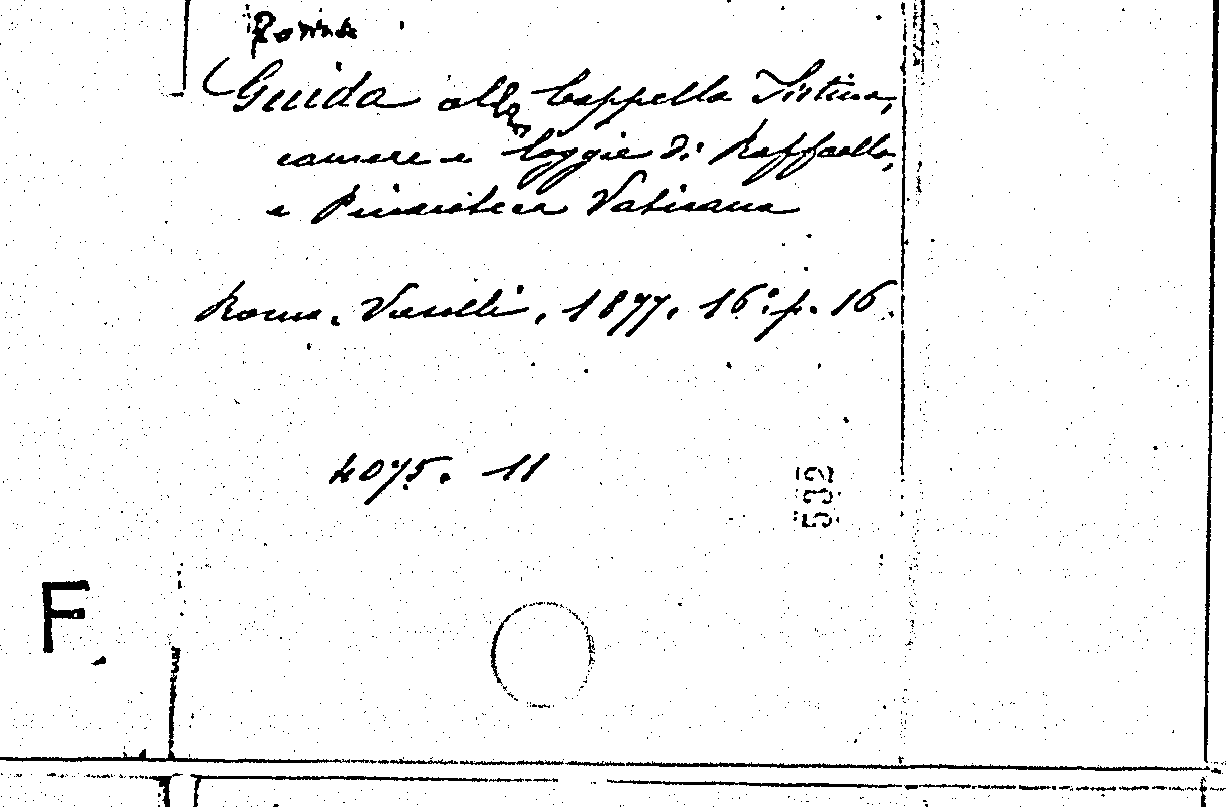 Guida alla Cappella Sistina,
camere e loggie di Raffaello,
e Pinacoteca Vaticana
Roma. Vaselli, 1877. 16º. p. 16.
4075. 11
532
F